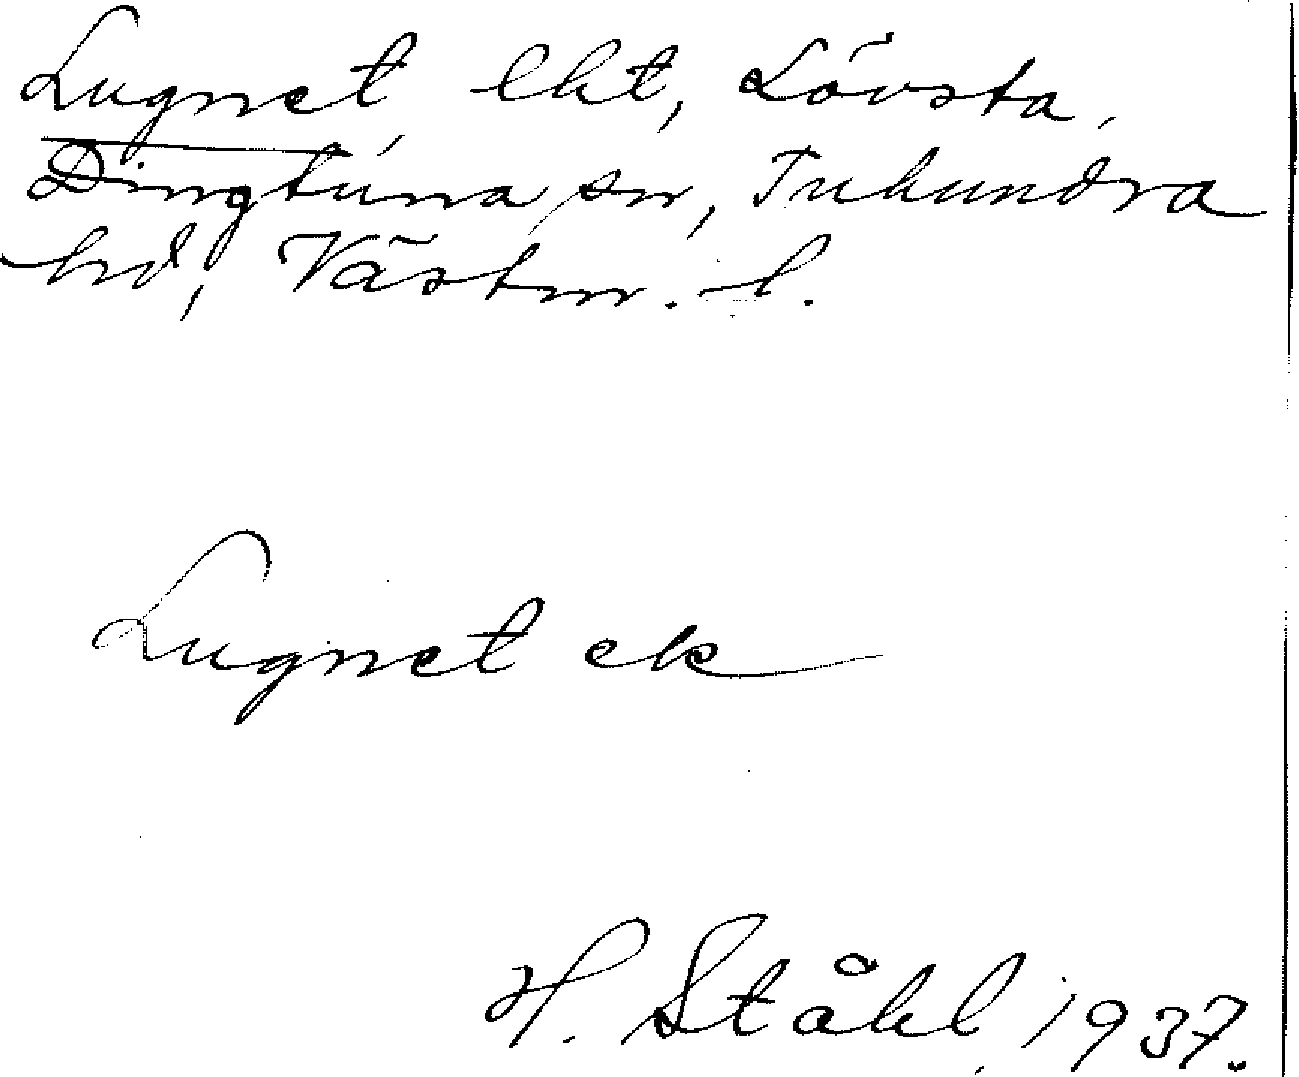 Lugnet lht, Lövsta,
Dingtuna sn, Tuhundra
hd, Västm. l.
Lugnet ek
H. Ståhl 1937.